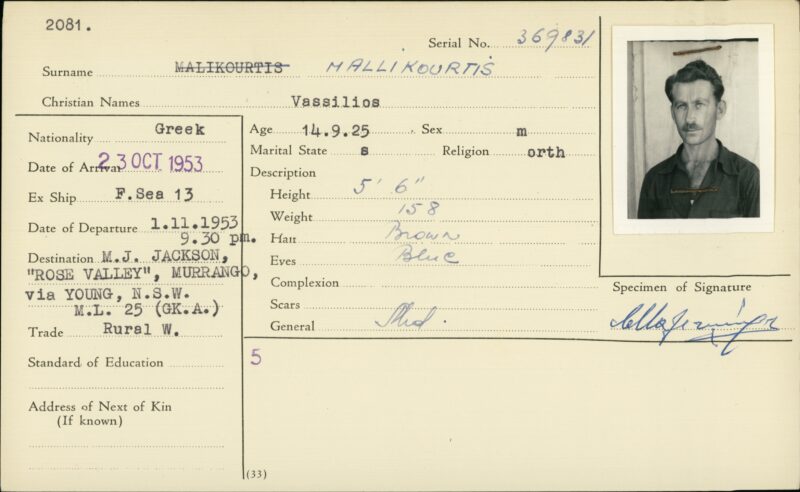 2081.
Serial No. 369831
Surname MALIKOURTIS MALLIKOURTIS
Christian Names Vassilios
Nationality Greek
Date of Arrival 23 OCT 1953
Ex Ship F.Sea 13
Date of Departure 1.11.1953
9.30 pm.
Destination M.J. JACKSON,
"ROSE VALLEY", MURRANGO,
via YOUNG, N.S.W.
M.L. 25 (GK.A.)
Trade Rural W.
Standard of Education
Address of Next of Kin
(If known)
Age 14.9.25 Sex m
Marital State s Religion orth
Description
Height 5' 6"
Weight 158
Hair Brown
Eyes Blue
Complexion
Scars
General Med.
5
(33)
Specimen of Signature